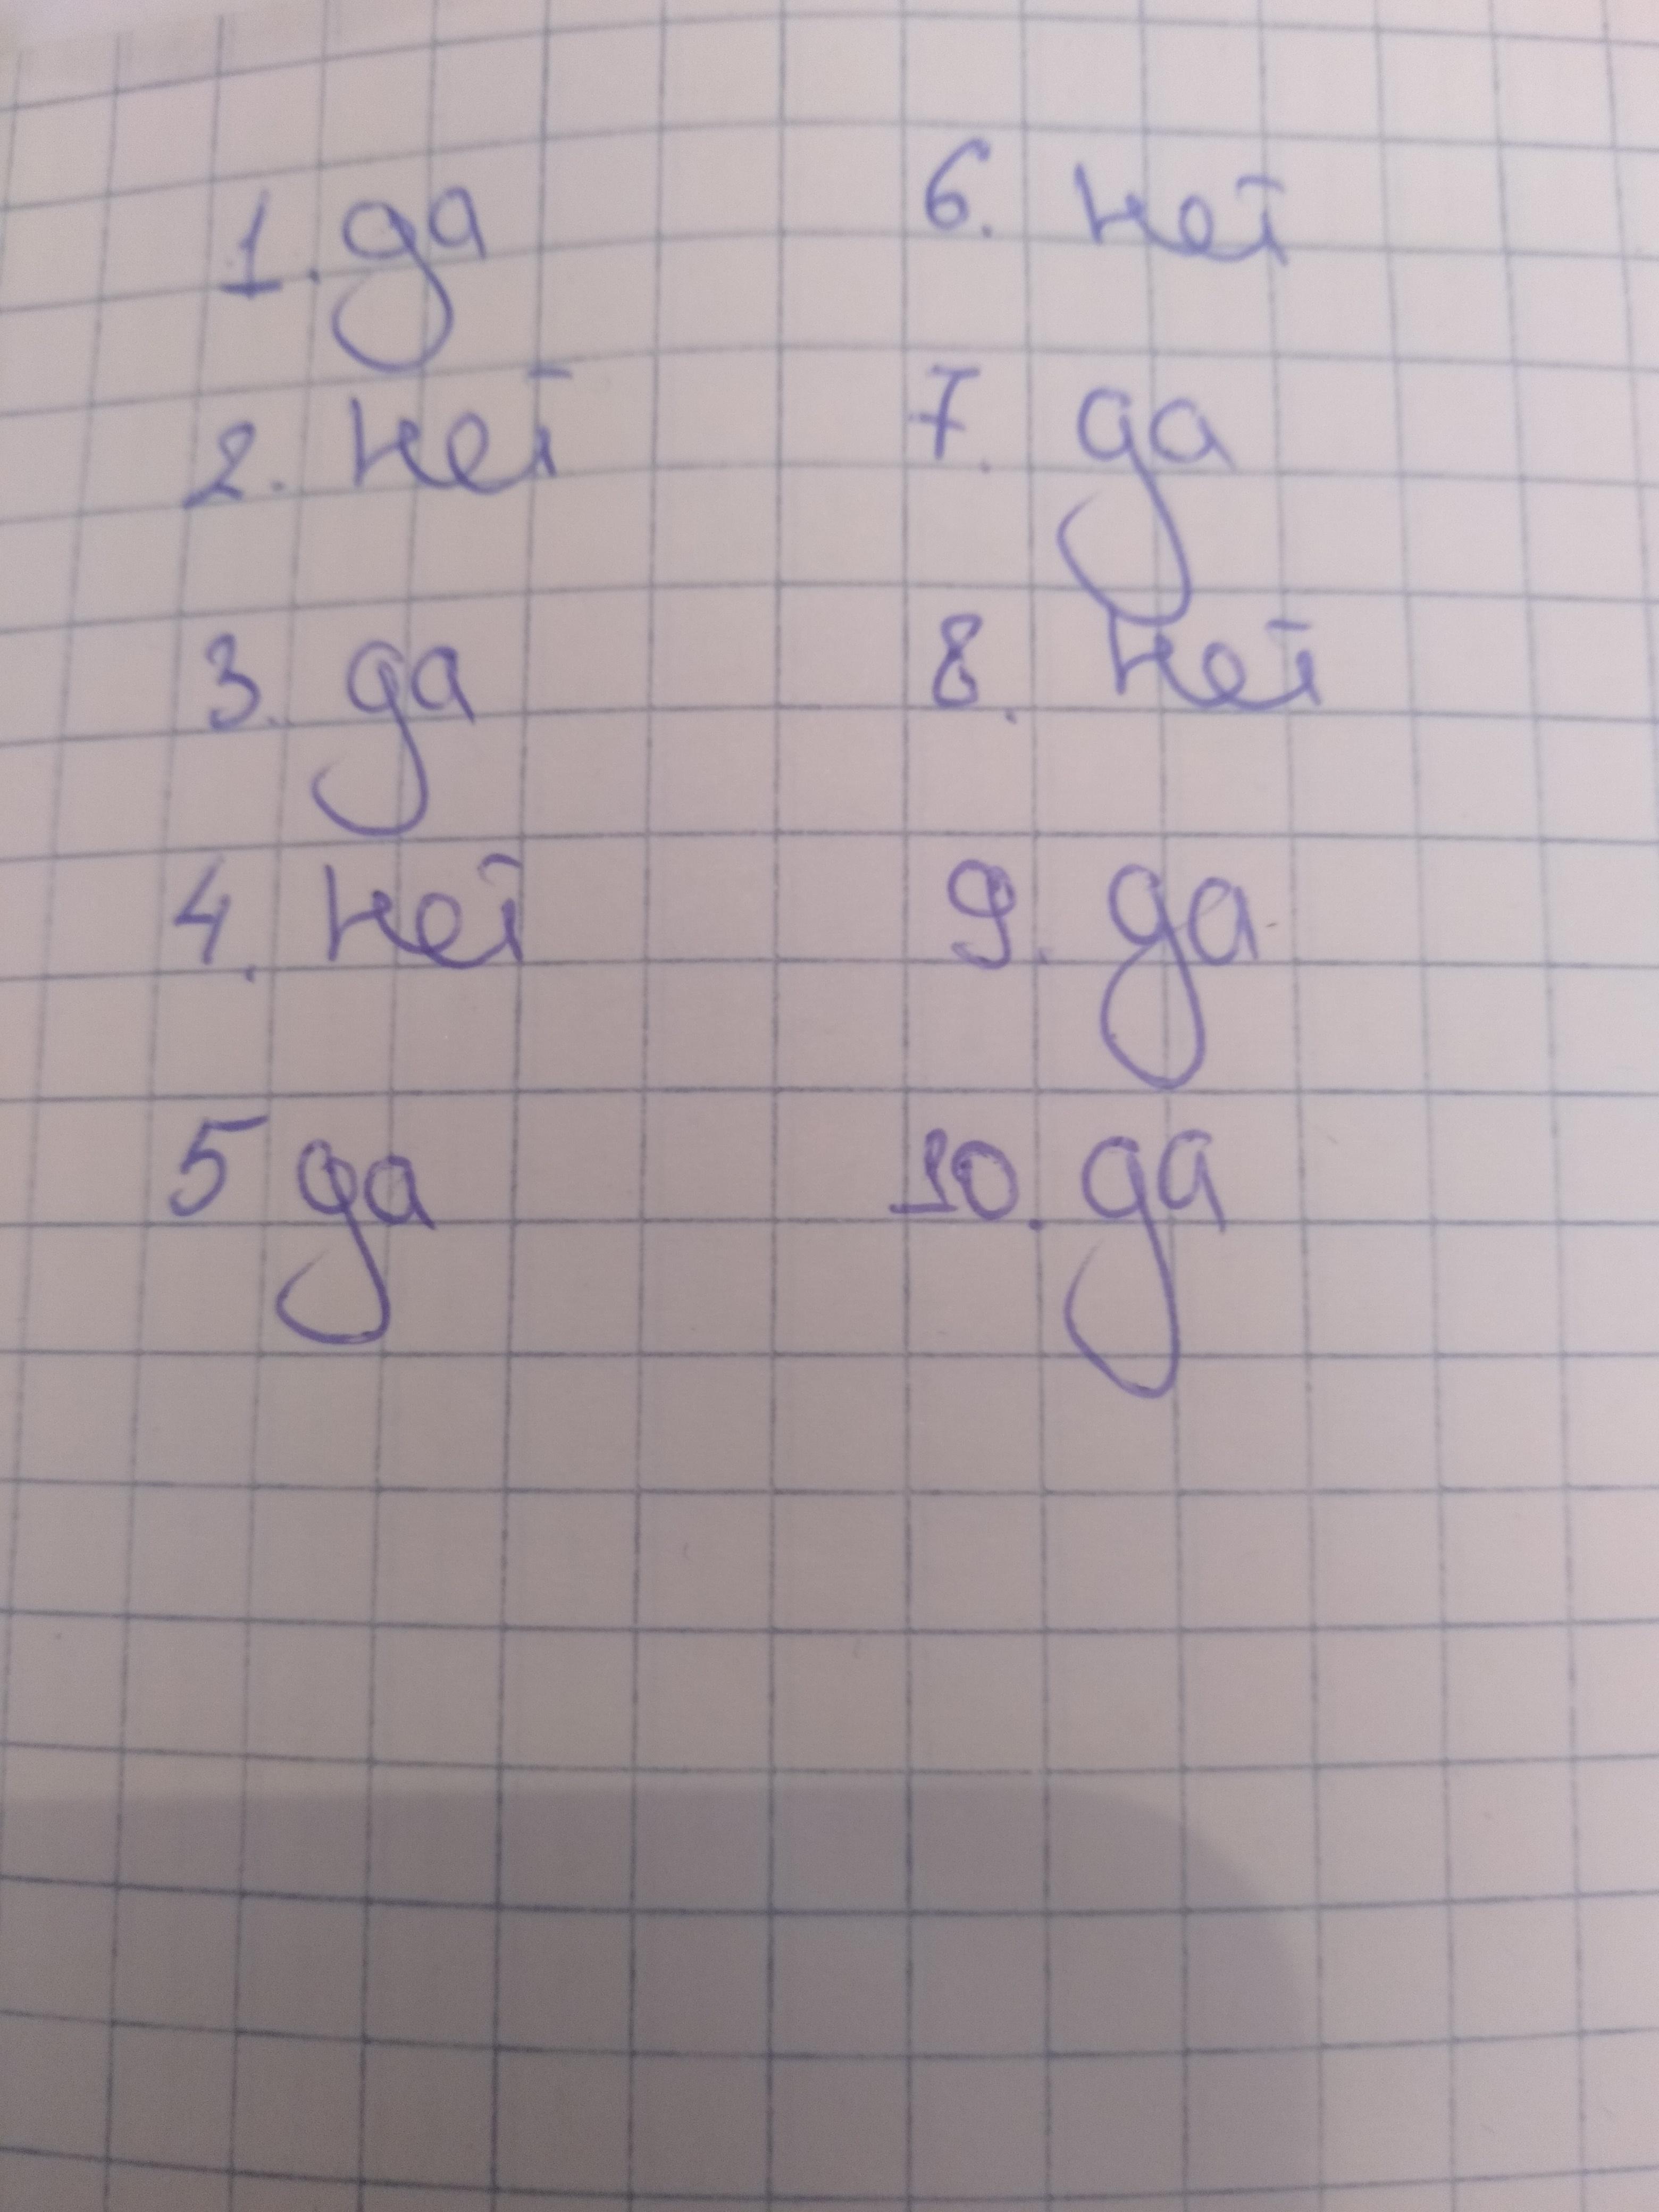 1. да
2. нет
3. да
4. нет
5 да
6. нет
7. да
8. нет
9. да
10. да